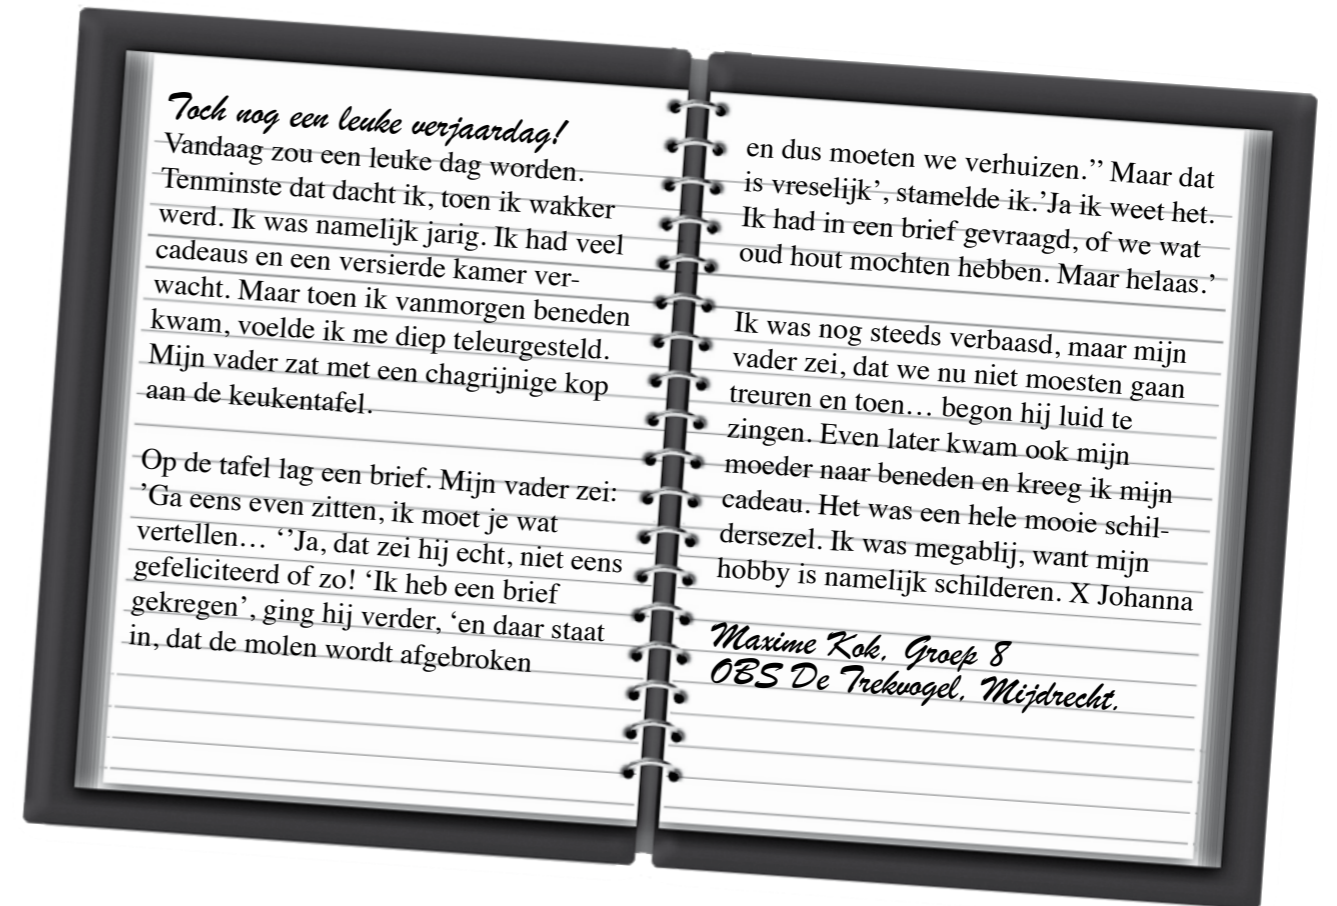 Toch nog een leuke verjaardag!
Vandaag zou een leuke dag worden.
Tenminste dat dacht ik, toen ik wakker
werd. Ik was namelijk jarig. Ik had veel
cadeaus en een versierde kamer ver-
wacht. Maar toen ik vanmorgen beneden
kwam, voelde ik me diep teleurgesteld.
Mijn vader zat met een chagrijnige kop
aan de keukentafel.

Op de tafel lag een brief. Mijn vader zei:
’Ga eens even zitten, ik moet je wat
vertellen… ‘’Ja, dat zei hij echt, niet eens
gefeliciteerd of zo! ‘Ik heb een brief
gekregen’, ging hij verder, ‘en daar staat
in, dat de molen wordt afgebroken
en dus moeten we verhuizen.’’ Maar dat
is vreselijk’, stamelde ik.’Ja ik weet het.
Ik had in een brief gevraagd, of we wat
oud hout mochten hebben. Maar helaas.’

Ik was nog steeds verbaasd, maar mijn
vader zei, dat we nu niet moesten gaan
treuren en toen… begon hij luid te
zingen. Even later kwam ook mijn
moeder naar beneden en kreeg ik mijn
cadeau. Het was een hele mooie schil-
dersezel. Ik was megablij, want mijn
hobby is namelijk schilderen. X Johanna

Maxime Kok, Groep 8
OBS De Trekvogel, Mijdrecht.